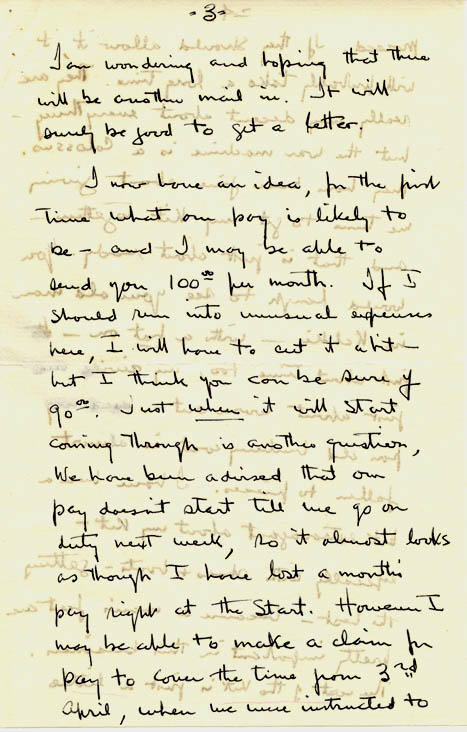 - 3 -
I am wondering and hoping that there
will be another mail in. It will
surely be good to get a letter.
I now have an idea, for the first
time what our pay is likely to
be - and I may be able to
send you 100.00 per month. If I
should run into unusual expenses
here, I will have to cut it a bit -
but I think you can be sure of
90.00. Just when it will start
coming through is another question,
We have been advised that our
pay doesn't start till we go on
duty next week, so it almost looks
as though I have lost a month's
pay right at the start. However I
may be able to make a claim for
pay to cover the time from 3rd
April, when we were instructed to